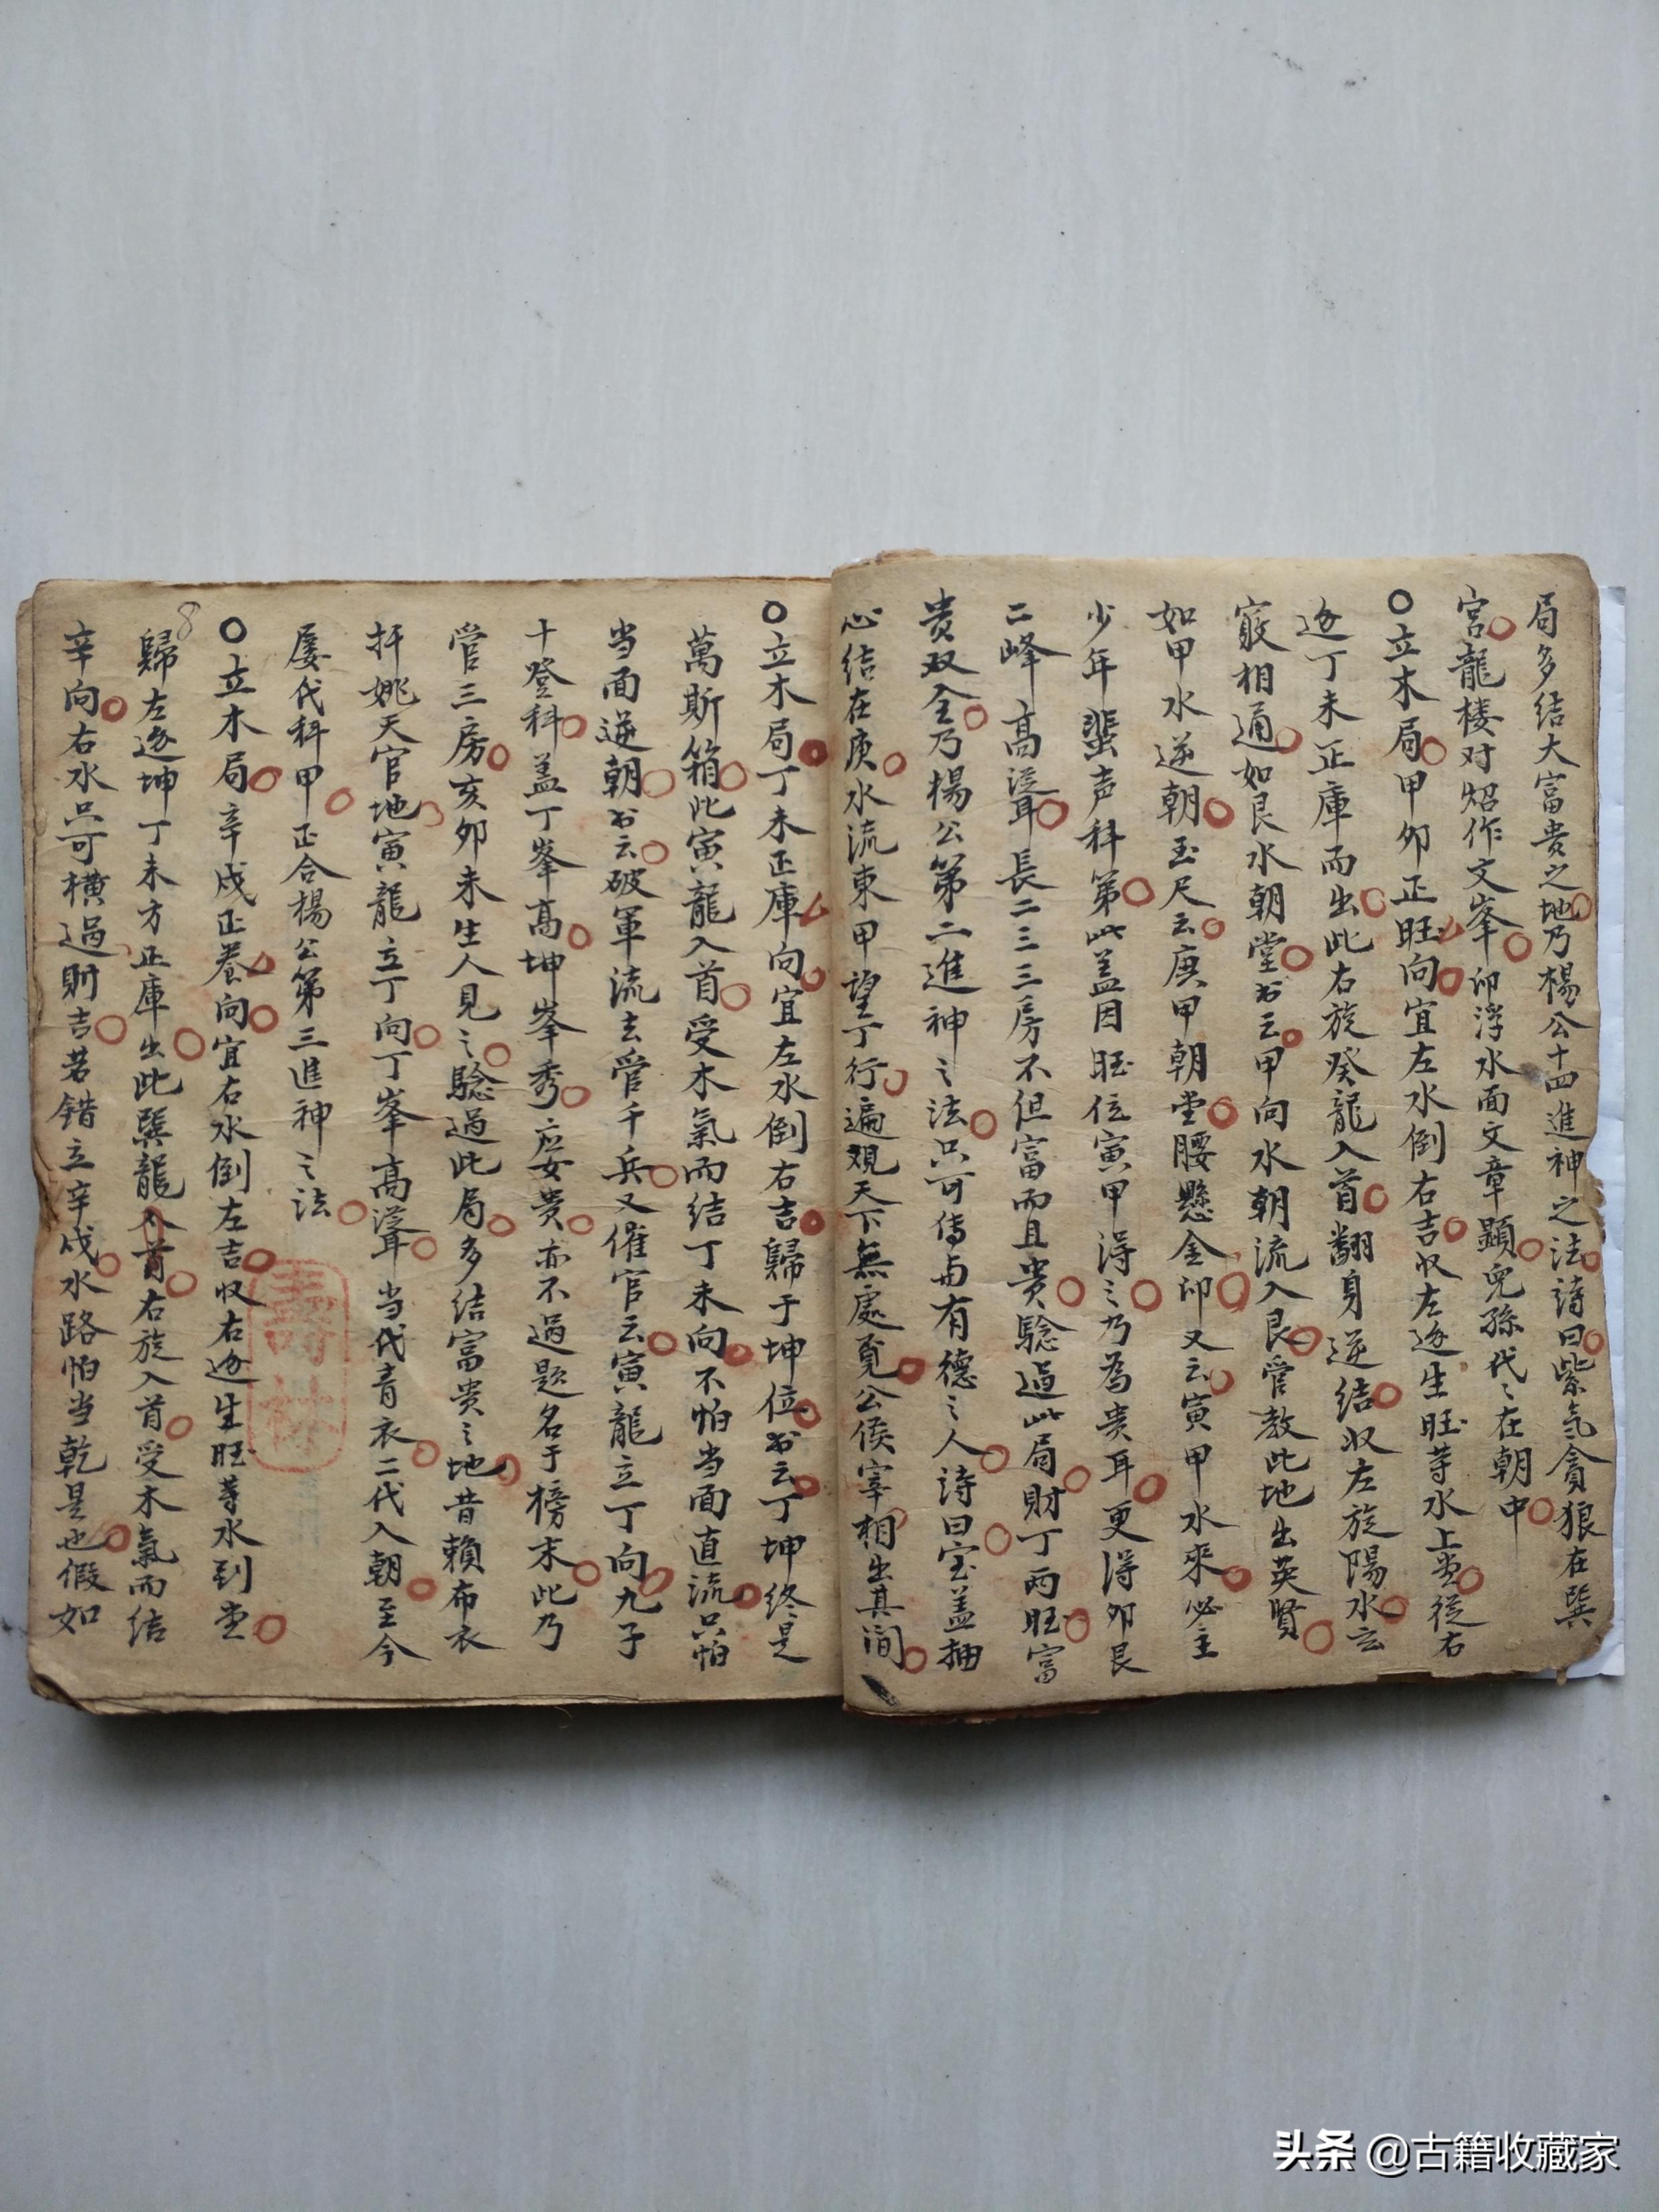 局多结大富贵之地乃楊公十四進神之法詩曰紫气貪狼在巽
宮龍楼对炤作文峯卯浮水面文章顕兒孫代〻在朝中
○立木局甲卯正旺向宜左水倒右吉収左逆生旺等水上堂從右
逆丁未正庫而出此右旋癸龍入首翻身逆结収左旋陽水云
竅相通如艮水朝堂书云甲向水朝流入艮管教此地出英賢
如甲水逆朝玉尺云庚甲朝堂腰懸金印又云寅甲水来必主
少年蜚声科第此盖因旺位寅甲得之乃為贵耳更得卯艮
二峰高聳長二三房不但富而且贵驗過此局財丁两旺富
贵双全乃楊公第二進神之法只可傳与有德之人詩曰宝盖抽
心结在庚水流東甲望丁行遍观天下無處覓公侯宰相出其间
○立木局丁未正庫向宜左水倒右吉歸于坤位书云丁坤终是
萬斯箱此寅龍入首受木氣而结丁未向不怕当面直流只怕
当面逆朝书云破軍流去管千兵又催官云寅龍立丁向九子
十登科盖丁峯高坤峯秀应女贵亦不過题名于榜末此乃
管三房亥卯未生人見之驗過此局多结富贵之地昔賴布衣
扦姚天官地寅龍立丁向丁峯高聳当代青衣二代入朝至今
屡代科甲正合楊公第三進神之法
○立木局辛戌正养向宜右水倒左吉収右逆生旺等水到堂
歸左逆坤丁未方正庫出此巽龍入首右旋入首受木氣而结
辛向右水只可横過則吉若错立辛戌水路怕当乾是也假如
8
壽林
头条 @古籍收藏家